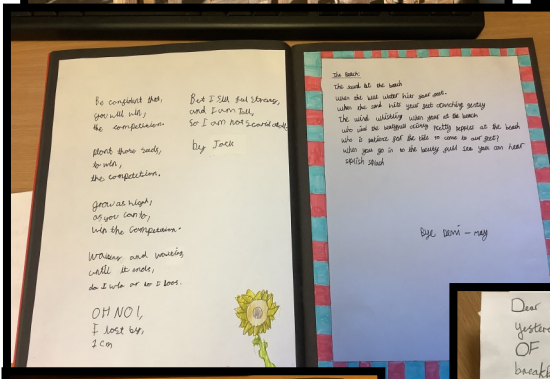 Be confident that,
you will win,
the competision.
plant those seeds,
to win,
the competition.
grow as high,
as you can to,
win the competision.
waiting and waiting
until it ends,
do I win or do I loos.
OH NO!,
I lost by,
1cm
But I still feel strong,
and I am tall,
so I am not scared at all.
by Jack
The Beach:
The sand at the beach
when the water hits your feet.
when the sand hits your feet crunching gently
The wind whistling when your at the beach
pretty pebbles at the beach
for the tide to come to our feet,
when you go in to the sea you can hear
splish splash
Bye Demi - may
Dear
yester
OF
breakf